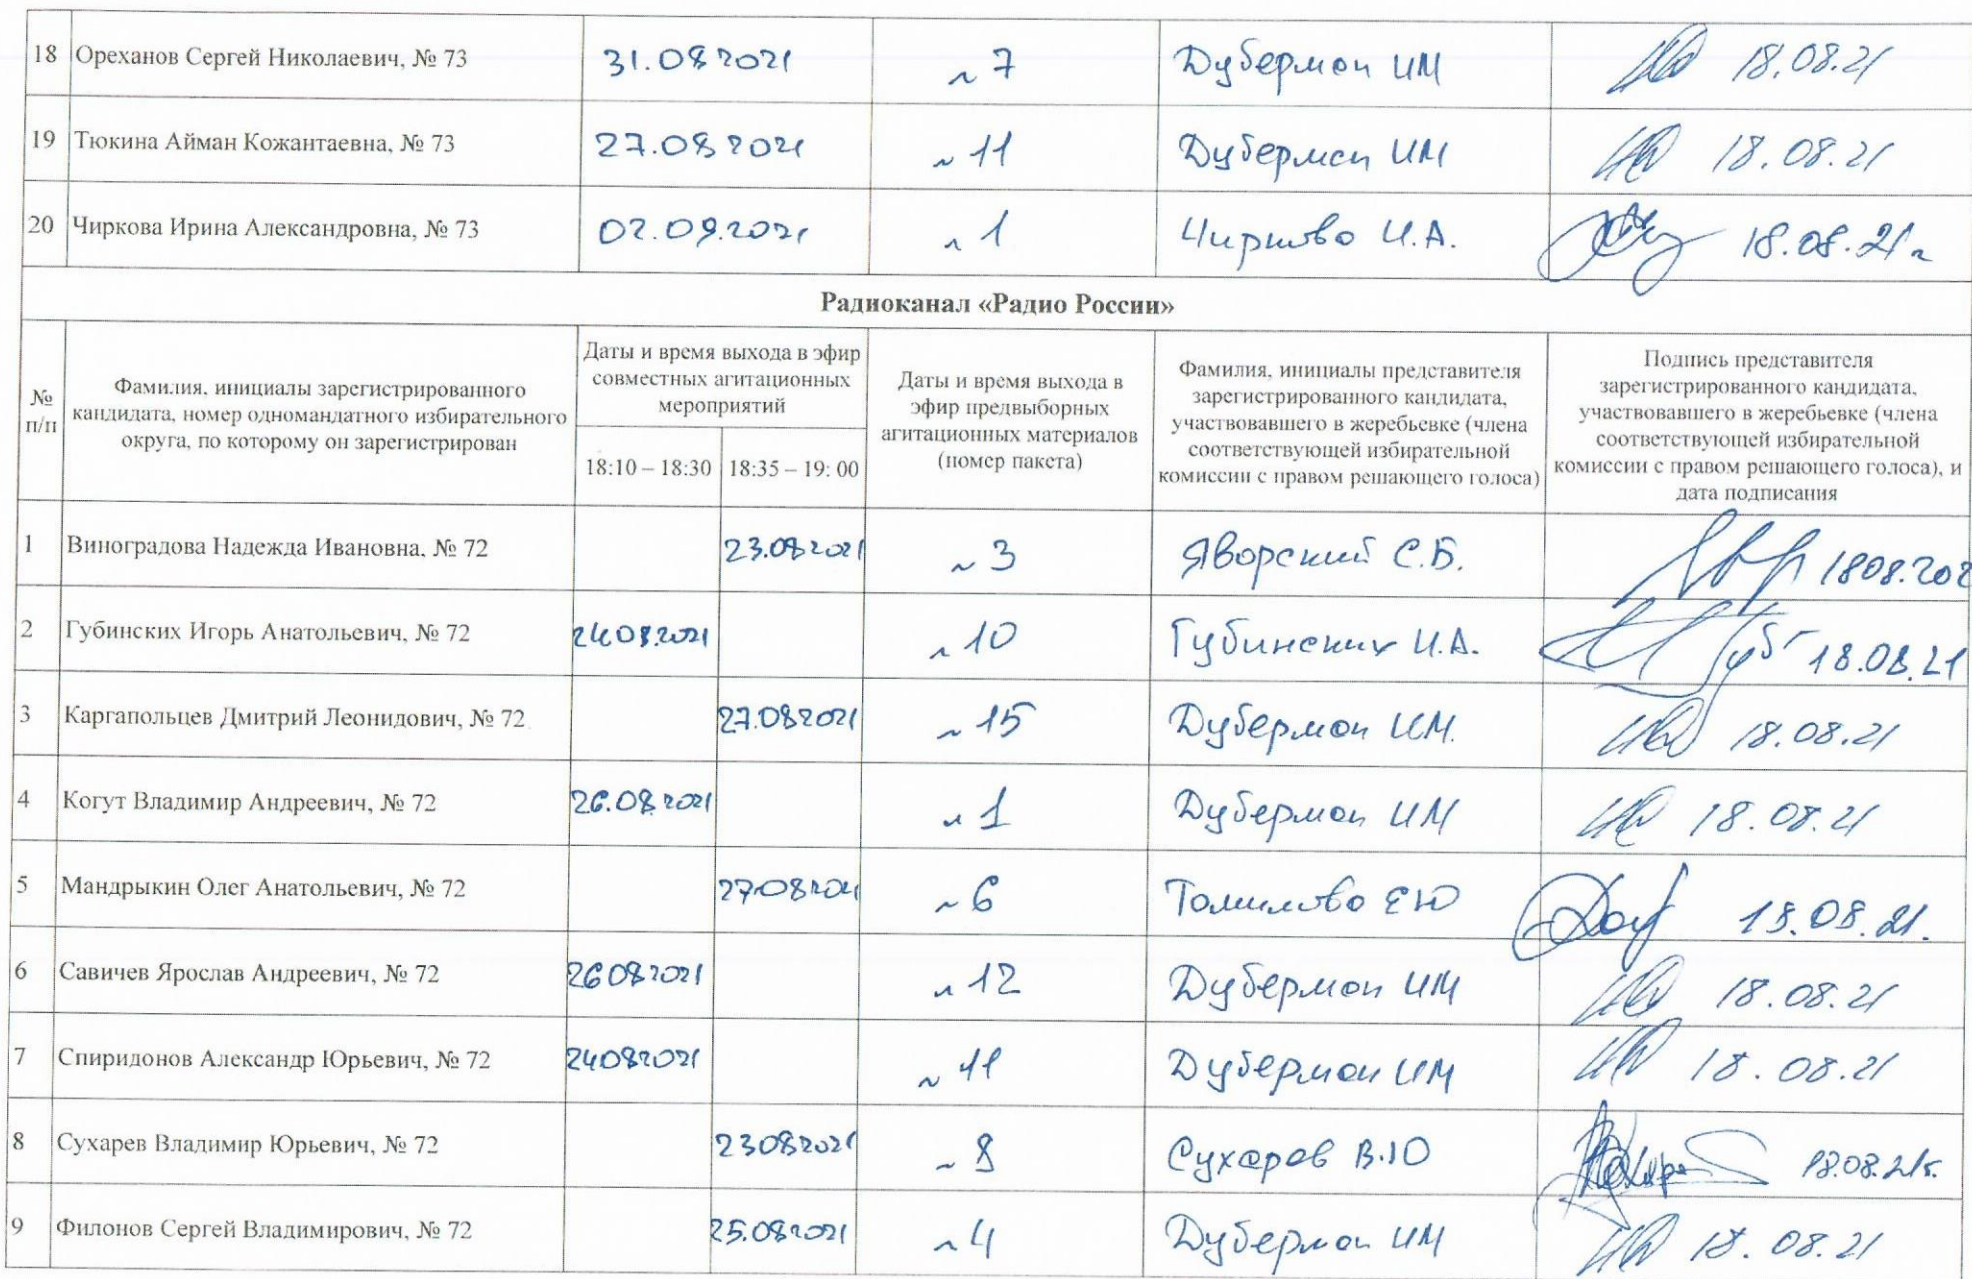 18 Ореханов Сергей Николаевич, № 73 31.08 2021 ~ 7 Дуберман ИМ 18.08.21
19 Тюкина Айман Кожантаевна, № 73 27.08 2021 ~ 11 Дуберман ИМ 18.08.21
20 Чиркова Ирина Александровна, № 73 02.09.2021 ~ 1 Чиркова И.А. 18.08.21г
Радиоканал «Радио России»
№
п/п
Фамилия, инициалы зарегистрированного
кандидата, номер одномандатного избирательного
округа, по которому он зарегистрирован
Даты и время выхода в эфир
совместных агитационных
мероприятий
18:10 – 18:30 18:35 – 19: 00
Даты и время выхода в
эфир предвыборных
агитационных материалов
(номер пакета)
Фамилия, инициалы представителя
зарегистрированного кандидата,
участвовавшего в жеребьевке (члена
соответствующей избирательной
комиссии с правом решающего голоса)
Подпись представителя
зарегистрированного кандидата,
участвовавшего в жеребьевке (члена
соответствующей избирательной
комиссии с правом решающего голоса), и
дата подписания
1 Виноградова Надежда Ивановна, № 72 23.08 2021 ~ 3 Яворский С.Б. 1808.202
2 Губинских Игорь Анатольевич, № 72 24.08.2021 ~ 10 Губинских И.А. 18.08.21
3 Каргапольцев Дмитрий Леонидович, № 72 27.082021 ~ 15 Дуберман ИМ. 18.08.21
4 Когут Владимир Андреевич, № 72 26.08.2021 ~ 1 Дуберман ИМ 18.08.21
5 Мандрыкин Олег Анатольевич, № 72 27.08 2021 ~ 6 Томилова ЕЮ 18.08.21.
6 Савичев Ярослав Андреевич, № 72 26082021 ~ 12 Дуберман ИМ 18.08.21
7 Спиридонов Александр Юрьевич, № 72 24082021 ~ 11 Дуберман ИМ 18.08.21
8 Сухарев Владимир Юрьевич, № 72 23082021 ~ 8 Сухарев В.Ю 18.08.21г.
9 Филонов Сергей Владимирович, № 72 25.082021 ~ 4 Дуберман ИМ 18.08.21